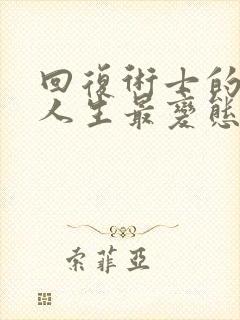 回復術士的
人生最變態
索菲亞